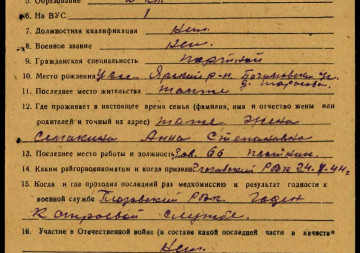 5. Образование
6. На ВУС 1
7. Должностная квалификация Нет.
8. Военное звание Нет.
9. Гражданская специальность портной
10. Место рождения Ярский р-н
11. Последнее место жительства
12. Где проживает в настоящее время семья (фамилия, имя и отчество жены или
родителей и точный их адрес) жена
Семакина Анна Степановна
13. Последнее место работы и должность
14. Каким райгорводкоматом и когда призван Глазовский РВК 24.
15. Когда и где проходил последний раз медкомиссию и результат годности к
военной службе Глазовский РВК годен
К строевой службе.
16. Участие в Отечественной войне (в составе какой последней части и качестве
Нет.